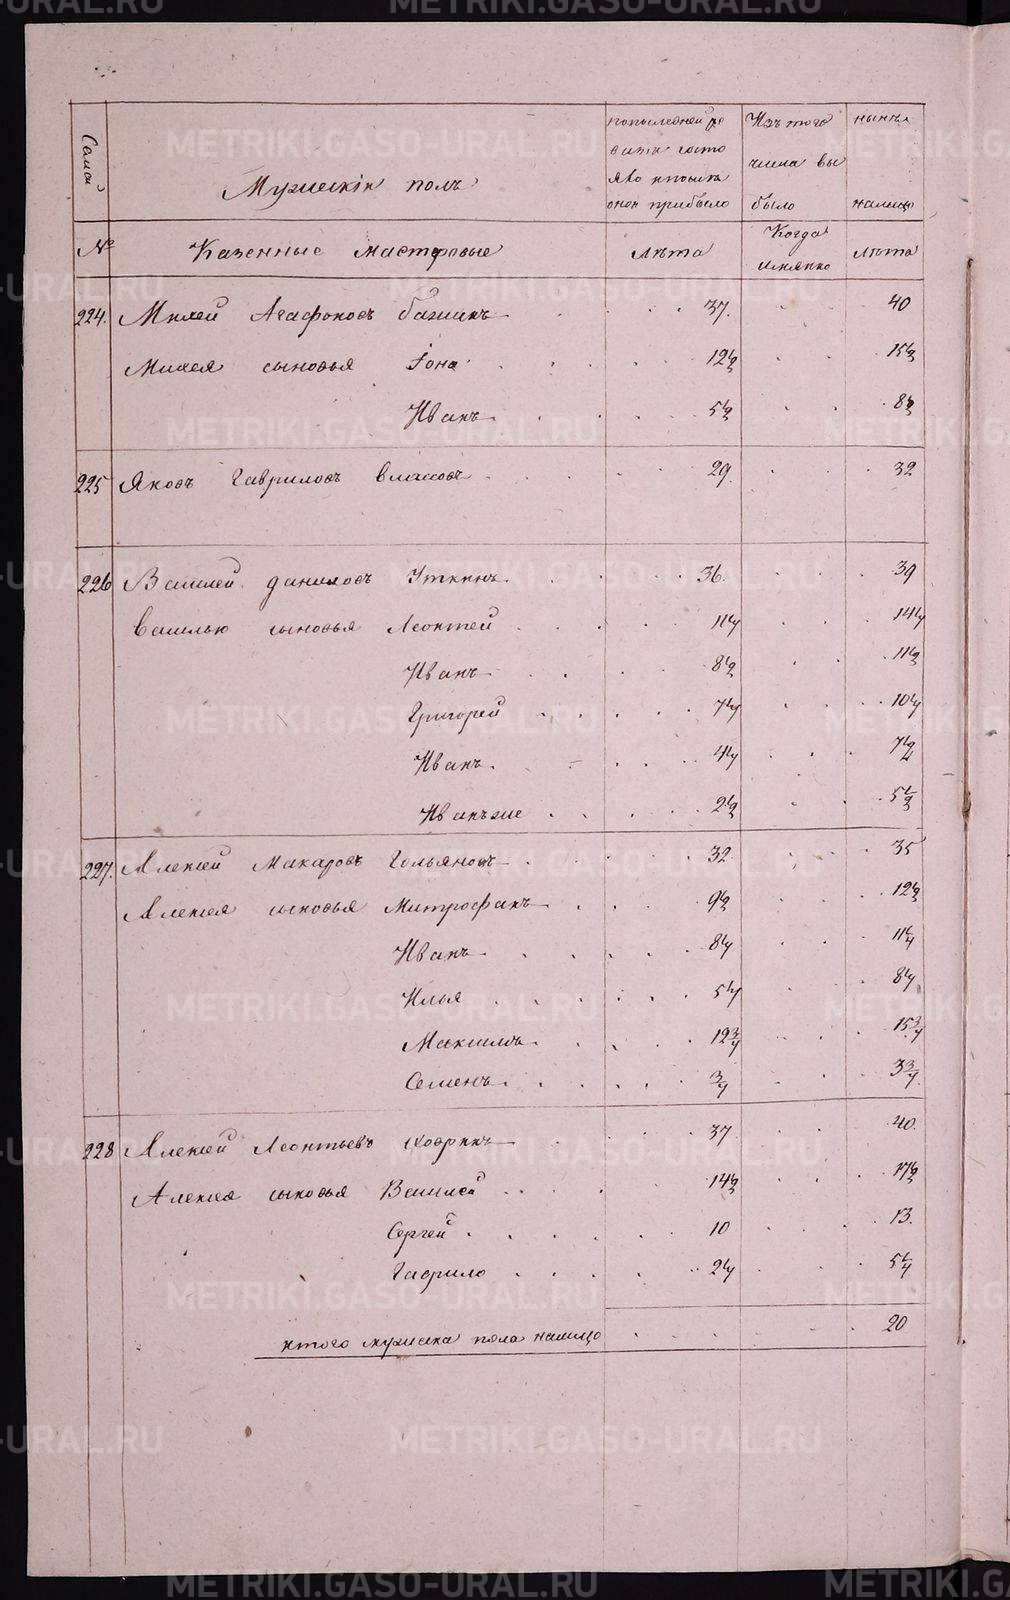 Семьи
Мужескiй полъ
по последней ре
визiи состо
яло и после
оной прибыло
Изъ того
числа вы
было
нынѣ
налицо
№
Казенные мастеровые
лѣта
Когда
именно
лѣта
224. Михей Агафоновъ 37. 40
Михея сыновья Iона 12½ 15½
Иванъ 5½ 8½
225 Яковъ Гавриловъ Власовъ 29. 32
226 Василей Даниловъ Уткинъ 36. 39
Василью сыновья Леонтей 11¼ 14¼
Иванъ 8½ 11½
Григорей 7¼ 10¼
Иванъ 4¼ 7¼
Иванъ же 2½ 5½
227. Алексей Макаровъ Гольяновъ 32 35
Алексея сыновья Митрофанъ 9½ 12½
Иванъ 8¼ 11¼
Илья 5¼ 8¼
Максимъ 12¾ 15¾
Семенъ ¾ 3¾
228 Алексей Леонтьевъ 37 40.
Алексея сыновья Василей 14½ 17½
Сергей 10 13.
Гаврило 2¼ 5¼
итого мужеска пола налицо 20
METRIKI.GASO-URAL.RU